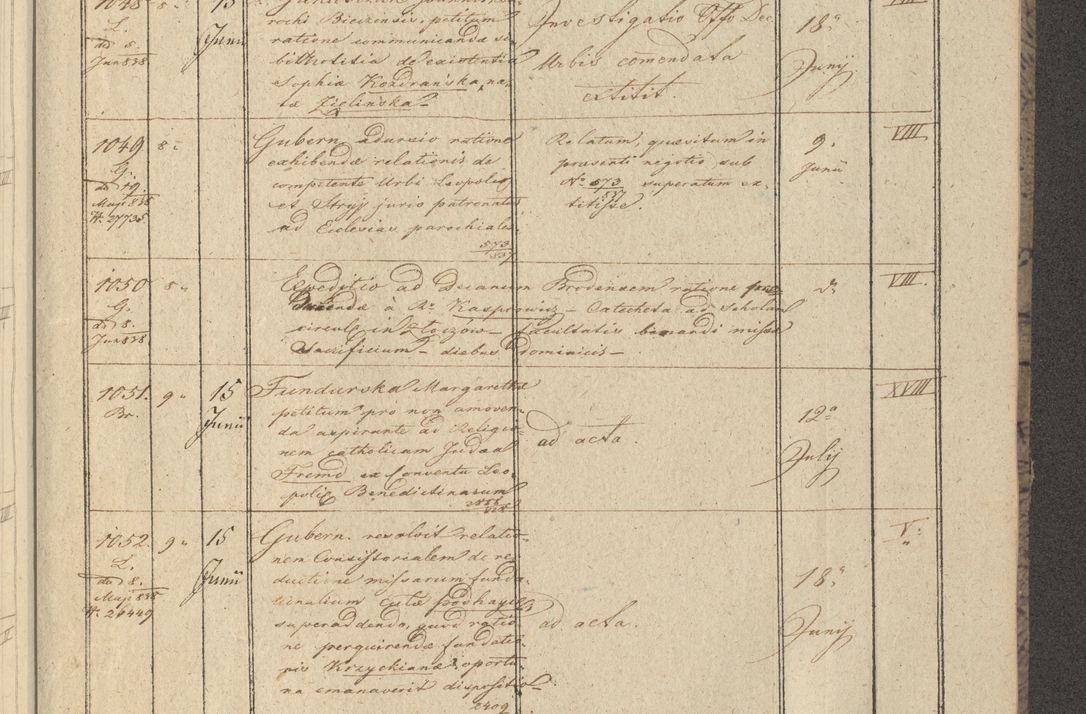 1048 8 15
L.
do 5.
Jun 838
Junii
rochi Bieczensis, petitum
ratione communicandæ si-
bi notitia de existentia
Sophia Kozdrańska, na-
ta Zielińska
Investigatio Offo Dec.
Urbis comendata
extitit.
18a
Junij
VIII
1049 8
G.
do 19.
Maji 838
N. 27735
Gubern. adursio ratione
exhibendæ relationis de
competente Urbi Leopolis
et Stryj juris patronatus
ad Ecclesias parochiales
573
837
Relatum, quæsitum in
præsenti negotio sub
No 573/837 superatum ex-
titisse.
9.
Junii
VIII
1050 8
G.
do 8.
Jun 838
Expeditio ad Decanum Brodensem ratione
à R. Kasprowicz - Catecheta ad Scholam
circul. in Złoczów - facultatis binandi missæ
Sacrificium - diebus dominicis -
VIII.
1051. 9 15
Br.
Junii
Fundurska Margaretha
petitum pro non amoven-
da aspirante ad Religio-
nem catholicam Judæa
Fremd ex Conventu Leo-
polis Benedictinarum
ad acta.
12a
Julij
XVIII
1052. 9 15
L.
do 8.
Maji 838
N. 26449
Junii
Gubern. resolvit relatio-
nem Consistorialem de re-
ductione missarum funda-
tionalium Eccle podhayce
superaddendo, quod ratio-
ne perquirendæ fundatio-
nis Krzyckiana oportu-
na emanaverit dispositio
2409
ad acta.
18a
Junij
V.